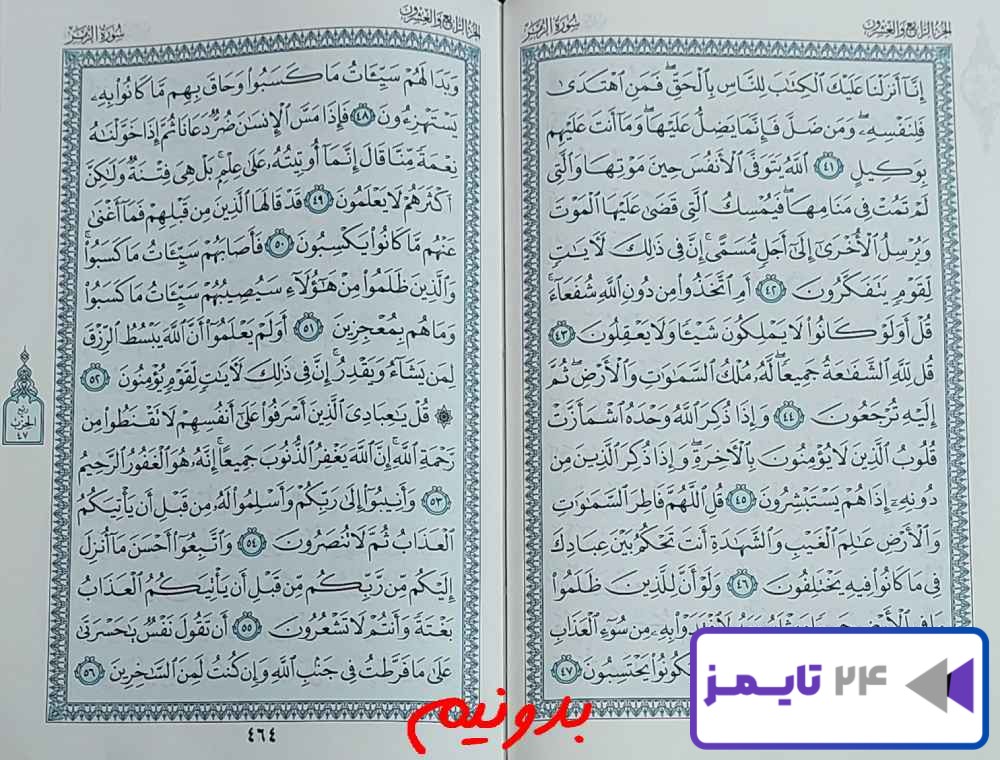 الجزء الرابع والعشرون
سورة الزمر
إِنَّآ أَنزَلْنَا عَلَيْكَ ٱلْكِتَٰبَ لِلنَّاسِ بِٱلْحَقِّ ۖ فَمَنِ ٱهْتَدَىٰ
فَلِنَفْسِهِۦ ۖ وَمَن ضَلَّ فَإِنَّمَا يَضِلُّ عَلَيْهَا ۖ وَمَآ أَنتَ عَلَيْهِم
بِوَكِيلٍ ٤١ ٱللَّهُ يَتَوَفَّى ٱلْأَنفُسَ حِينَ مَوْتِهَا وَٱلَّتِى
لَمْ تَمُتْ فِى مَنَامِهَا ۖ فَيُمْسِكُ ٱلَّتِى قَضَىٰ عَلَيْهَا ٱلْمَوْتَ
وَيُرْسِلُ ٱلْأُخْرَىٰٓ إِلَىٰٓ أَجَلٍ مُّسَمًّى ۚ إِنَّ فِى ذَٰلِكَ لَءَايَٰتٍ
لِّقَوْمٍ يَتَفَكَّرُونَ ٤٢ أَمِ ٱتَّخَذُوا۟ مِن دُونِ ٱللَّهِ شُفَعَآءَ ۚ
قُلْ أَوَلَوْ كَانُوا۟ لَا يَمْلِكُونَ شَيْـًٔا وَلَا يَعْقِلُونَ ٤٣
قُل لِّلَّهِ ٱلشَّفَٰعَةُ جَمِيعًا ۖ لَّهُۥ مُلْكُ ٱلسَّمَٰوَٰتِ وَٱلْأَرْضِ ۖ ثُمَّ
إِلَيْهِ تُرْجَعُونَ ٤٤ وَإِذَا ذُكِرَ ٱللَّهُ وَحْدَهُ ٱشْمَأَزَّتْ
قُلُوبُ ٱلَّذِينَ لَا يُؤْمِنُونَ بِٱلْءَاخِرَةِ ۖ وَإِذَا ذُكِرَ ٱلَّذِينَ مِن
دُونِهِۦٓ إِذَا هُمْ يَسْتَبْشِرُونَ ٤٥ قُلِ ٱللَّهُمَّ فَاطِرَ ٱلسَّمَٰوَٰتِ
وَٱلْأَرْضِ عَٰلِمَ ٱلْغَيْبِ وَٱلشَّهَٰدَةِ أَنتَ تَحْكُمُ بَيْنَ عِبَادِكَ
فِى مَا كَانُوا۟ فِيهِ يَخْتَلِفُونَ ٤٦ وَلَوْ أَنَّ لِلَّذِينَ ظَلَمُوا۟
مَا فِى ٱلْأَرْضِ لَٱفْتَدَوْا۟ بِهِۦ مِن سُوٓءِ ٱلْعَذَابِ
يَكُونُوا۟ يَحْتَسِبُونَ ٤٧
سورة الزمر
الجزء الرابع والعشرون
وَبَدَا لَهُمْ سَيِّـَٔاتُ مَا كَسَبُوا۟ وَحَاقَ بِهِم مَّا كَانُوا۟ بِهِۦ
يَسْتَهْزِءُونَ ٤٨ فَإِذَا مَسَّ ٱلْإِنسَٰنَ ضُرٌّ دَعَانَا ثُمَّ إِذَا خَوَّلْنَٰهُ
نِعْمَةً مِّنَّا قَالَ إِنَّمَآ أُوتِيتُهُۥ عَلَىٰ عِلْمٍۭ ۚ بَلْ هِىَ فِتْنَةٌ وَلَٰكِنَّ
أَكْثَرَهُمْ لَا يَعْلَمُونَ ٤٩ قَدْ قَالَهَا ٱلَّذِينَ مِن قَبْلِهِمْ فَمَآ أَغْنَىٰ
عَنْهُم مَّا كَانُوا۟ يَكْسِبُونَ ٥٠ فَأَصَابَهُمْ سَيِّـَٔاتُ مَا كَسَبُوا۟ ۚ
وَٱلَّذِينَ ظَلَمُوا۟ مِنْ هَٰٓؤُلَآءِ سَيُصِيبُهُمْ سَيِّـَٔاتُ مَا كَسَبُوا۟
وَمَا هُم بِمُعْجِزِينَ ٥١ أَوَلَمْ يَعْلَمُوٓا۟ أَنَّ ٱللَّهَ يَبْسُطُ ٱلرِّزْقَ
لِمَن يَشَآءُ وَيَقْدِرُ ۚ إِنَّ فِى ذَٰلِكَ لَءَايَٰتٍ لِّقَوْمٍ يُؤْمِنُونَ ٥٢
۞ قُلْ يَٰعِبَادِىَ ٱلَّذِينَ أَسْرَفُوا۟ عَلَىٰٓ أَنفُسِهِمْ لَا تَقْنَطُوا۟ مِن
رَّحْمَةِ ٱللَّهِ ۚ إِنَّ ٱللَّهَ يَغْفِرُ ٱلذُّنُوبَ جَمِيعًا ۚ إِنَّهُۥ هُوَ ٱلْغَفُورُ ٱلرَّحِيمُ
٥٣ وَأَنِيبُوٓا۟ إِلَىٰ رَبِّكُمْ وَأَسْلِمُوا۟ لَهُۥ مِن قَبْلِ أَن يَأْتِيَكُمُ
ٱلْعَذَابُ ثُمَّ لَا تُنصَرُونَ ٥٤ وَٱتَّبِعُوٓا۟ أَحْسَنَ مَآ أُنزِلَ
إِلَيْكُم مِّن رَّبِّكُم مِّن قَبْلِ أَن يَأْتِيَكُمُ ٱلْعَذَابُ
بَغْتَةً وَأَنتُمْ لَا تَشْعُرُونَ ٥٥ أَن تَقُولَ نَفْسٌ يَٰحَسْرَتَىٰ
عَلَىٰ مَا فَرَّطتُ فِى جَنۢبِ ٱللَّهِ وَإِن كُنتُ لَمِنَ ٱلسَّٰخِرِينَ ٥٦
ربع
الحزب
٤٧
٤٦٤
بدونیم
۲۴ تایمز